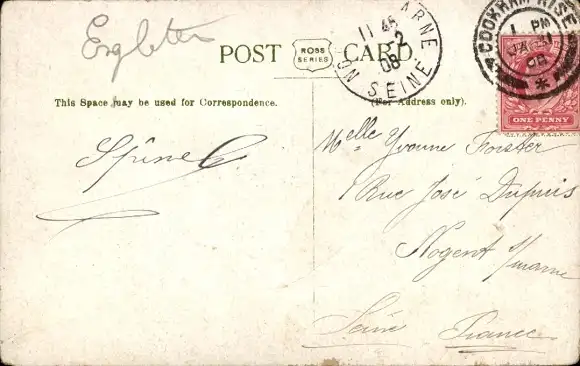 POST
ROSS
SERIES
CARD.
11 45
2
08
MARNE
SEINE
COOKHAM RISE
1 PM
JA 31
08
ONE PENNY
This Space may be used for Correspondence.
(For Address only).
Melle Yvonne Forster
Rue José Dupuis
Nogent s/marne
Seine France